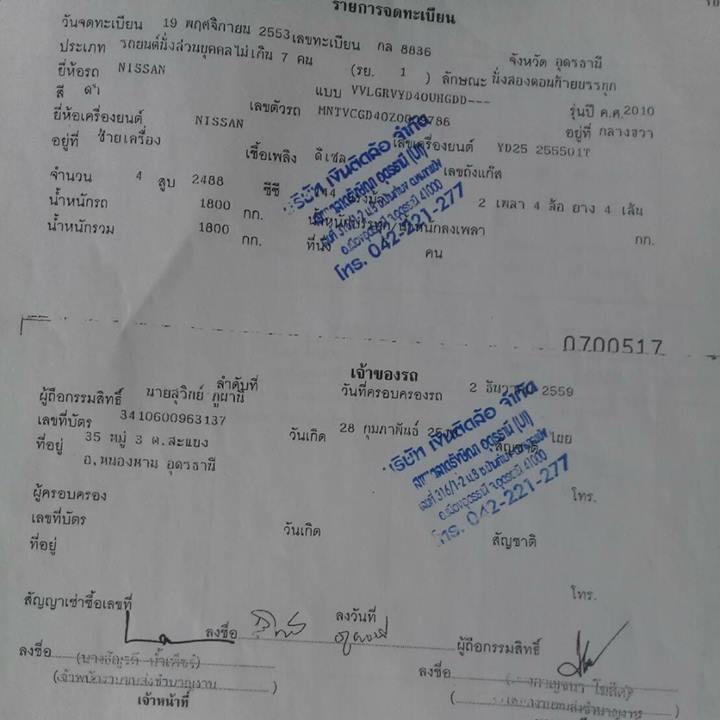 รายการจดทะเบียน
วันจดทะเบียน 19 พฤศจิกายน 2553 เลขทะเบียน กล 8836 จังหวัด อุดรธานี
ประเภท รถยนต์นั่งส่วนบุคคลไม่เกิน 7 คน (รย. 1 ) ลักษณะ นั่งสองตอนท้ายบรรทุก
ยี่ห้อรถ NISSAN แบบ VVLGRVYD40UHGDD--- รุ่นปี ค.ศ. 2010
สี ดำ เลขตัวรถ อยู่ที่ กลางขวา
ยี่ห้อเครื่องยนต์ NISSAN เลขเครื่องยนต์ YD25 255501T
อยู่ที่ ซ้ายเครื่อง เชื้อเพลิง ดีเซล เลขถังแก๊ส
จำนวน 4 สูบ 2488 ซีซี 2 เพลา 4 ล้อ ยาง 4 เส้น
น้ำหนักรถ 1800 กก. น้ำหนักบรรทุก/น้ำหนักลงเพลา กก.
น้ำหนักรวม 1800 กก. ที่นั่ง คน
บริษัท เงินติดล้อ จำกัด
เลขที่ 316/1-2 ม.3
อ.เมืองอุดรธานี จ.อุดรธานี 41000
โทร. 042-221-277
0700517
เจ้าของรถ
ลำดับที่ วันที่ครอบครองรถ 2 2559
ผู้ถือกรรมสิทธิ์ นายสุวิทย์ ภูผานี
เลขที่บัตร 3410600963137 วันเกิด 28 กุมภาพันธ์ สัญชาติ ไทย
ที่อยู่ 35 หมู่ 3 ต.สะแบง
อ.หนองหาน อุดรธานี
บริษัท เงินติดล้อ จำกัด
เลขที่ 316/1-2 ม.3
อ.เมืองอุดรธานี จ.อุดรธานี 41000
โทร. 042-221-277
โทร.
ผู้ครอบครอง
เลขที่บัตร วันเกิด สัญชาติ
ที่อยู่
โทร.
สัญญาเช่าซื้อเลขที่ ลงวันที่
ลงชื่อ ผู้ถือกรรมสิทธิ์
ลงชื่อ ลงชื่อ
(เจ้าพนักงานขนส่งชำนาญงาน)
เจ้าหน้าที่